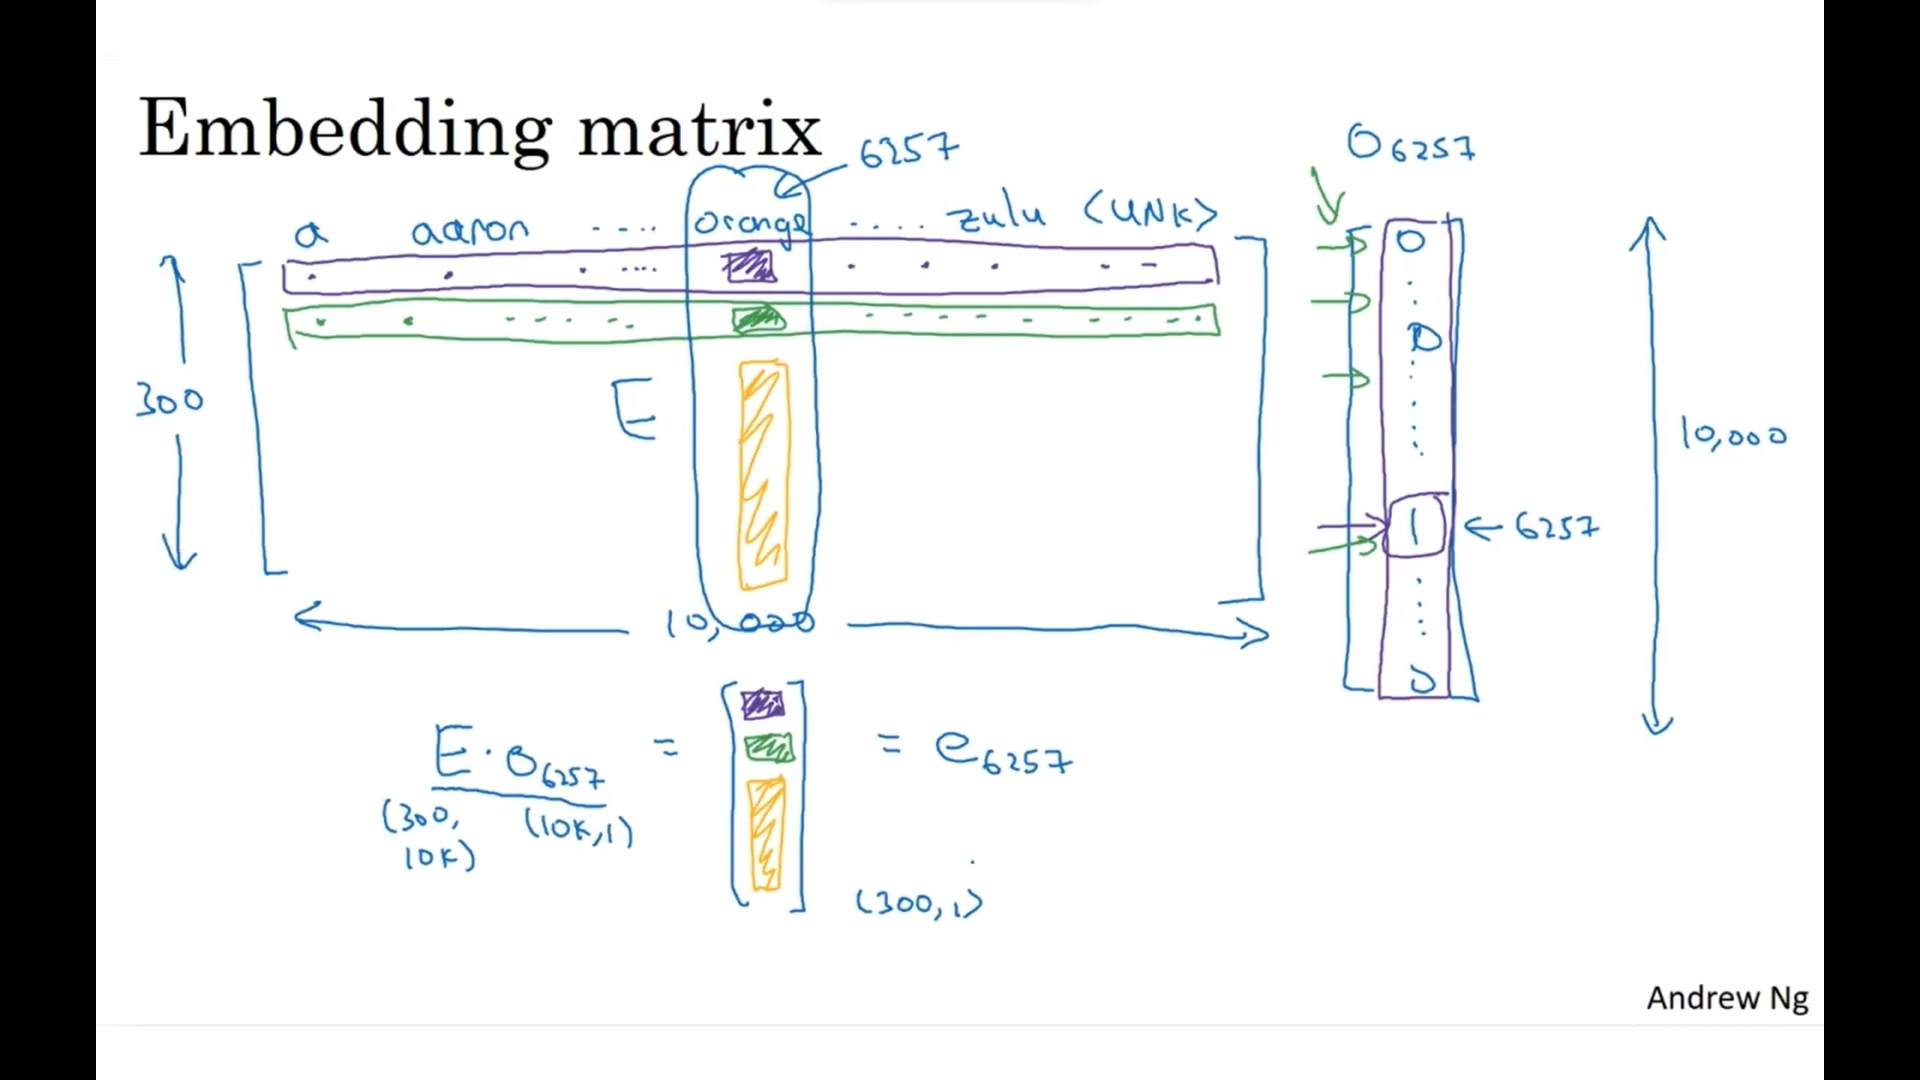 Embedding matrix
6257
O6257
a aaron ···· orange ····· zulu <UNK>
300
E
10,000
0
0
1 ← 6257
0
10,000
E · O6257 = = e6257
(300, 10K) (10K,1)
(300,1)
Andrew Ng